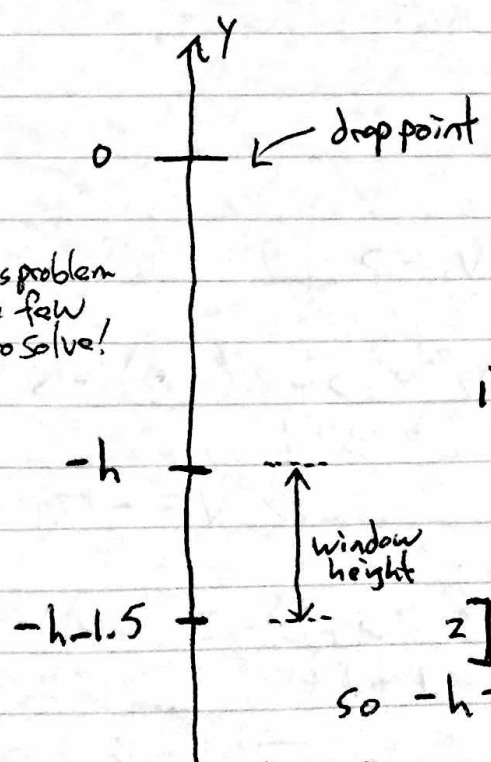 Y
drop point
0
problem
few
solve!
-h
window
height
-h-1.5
2]
so -h